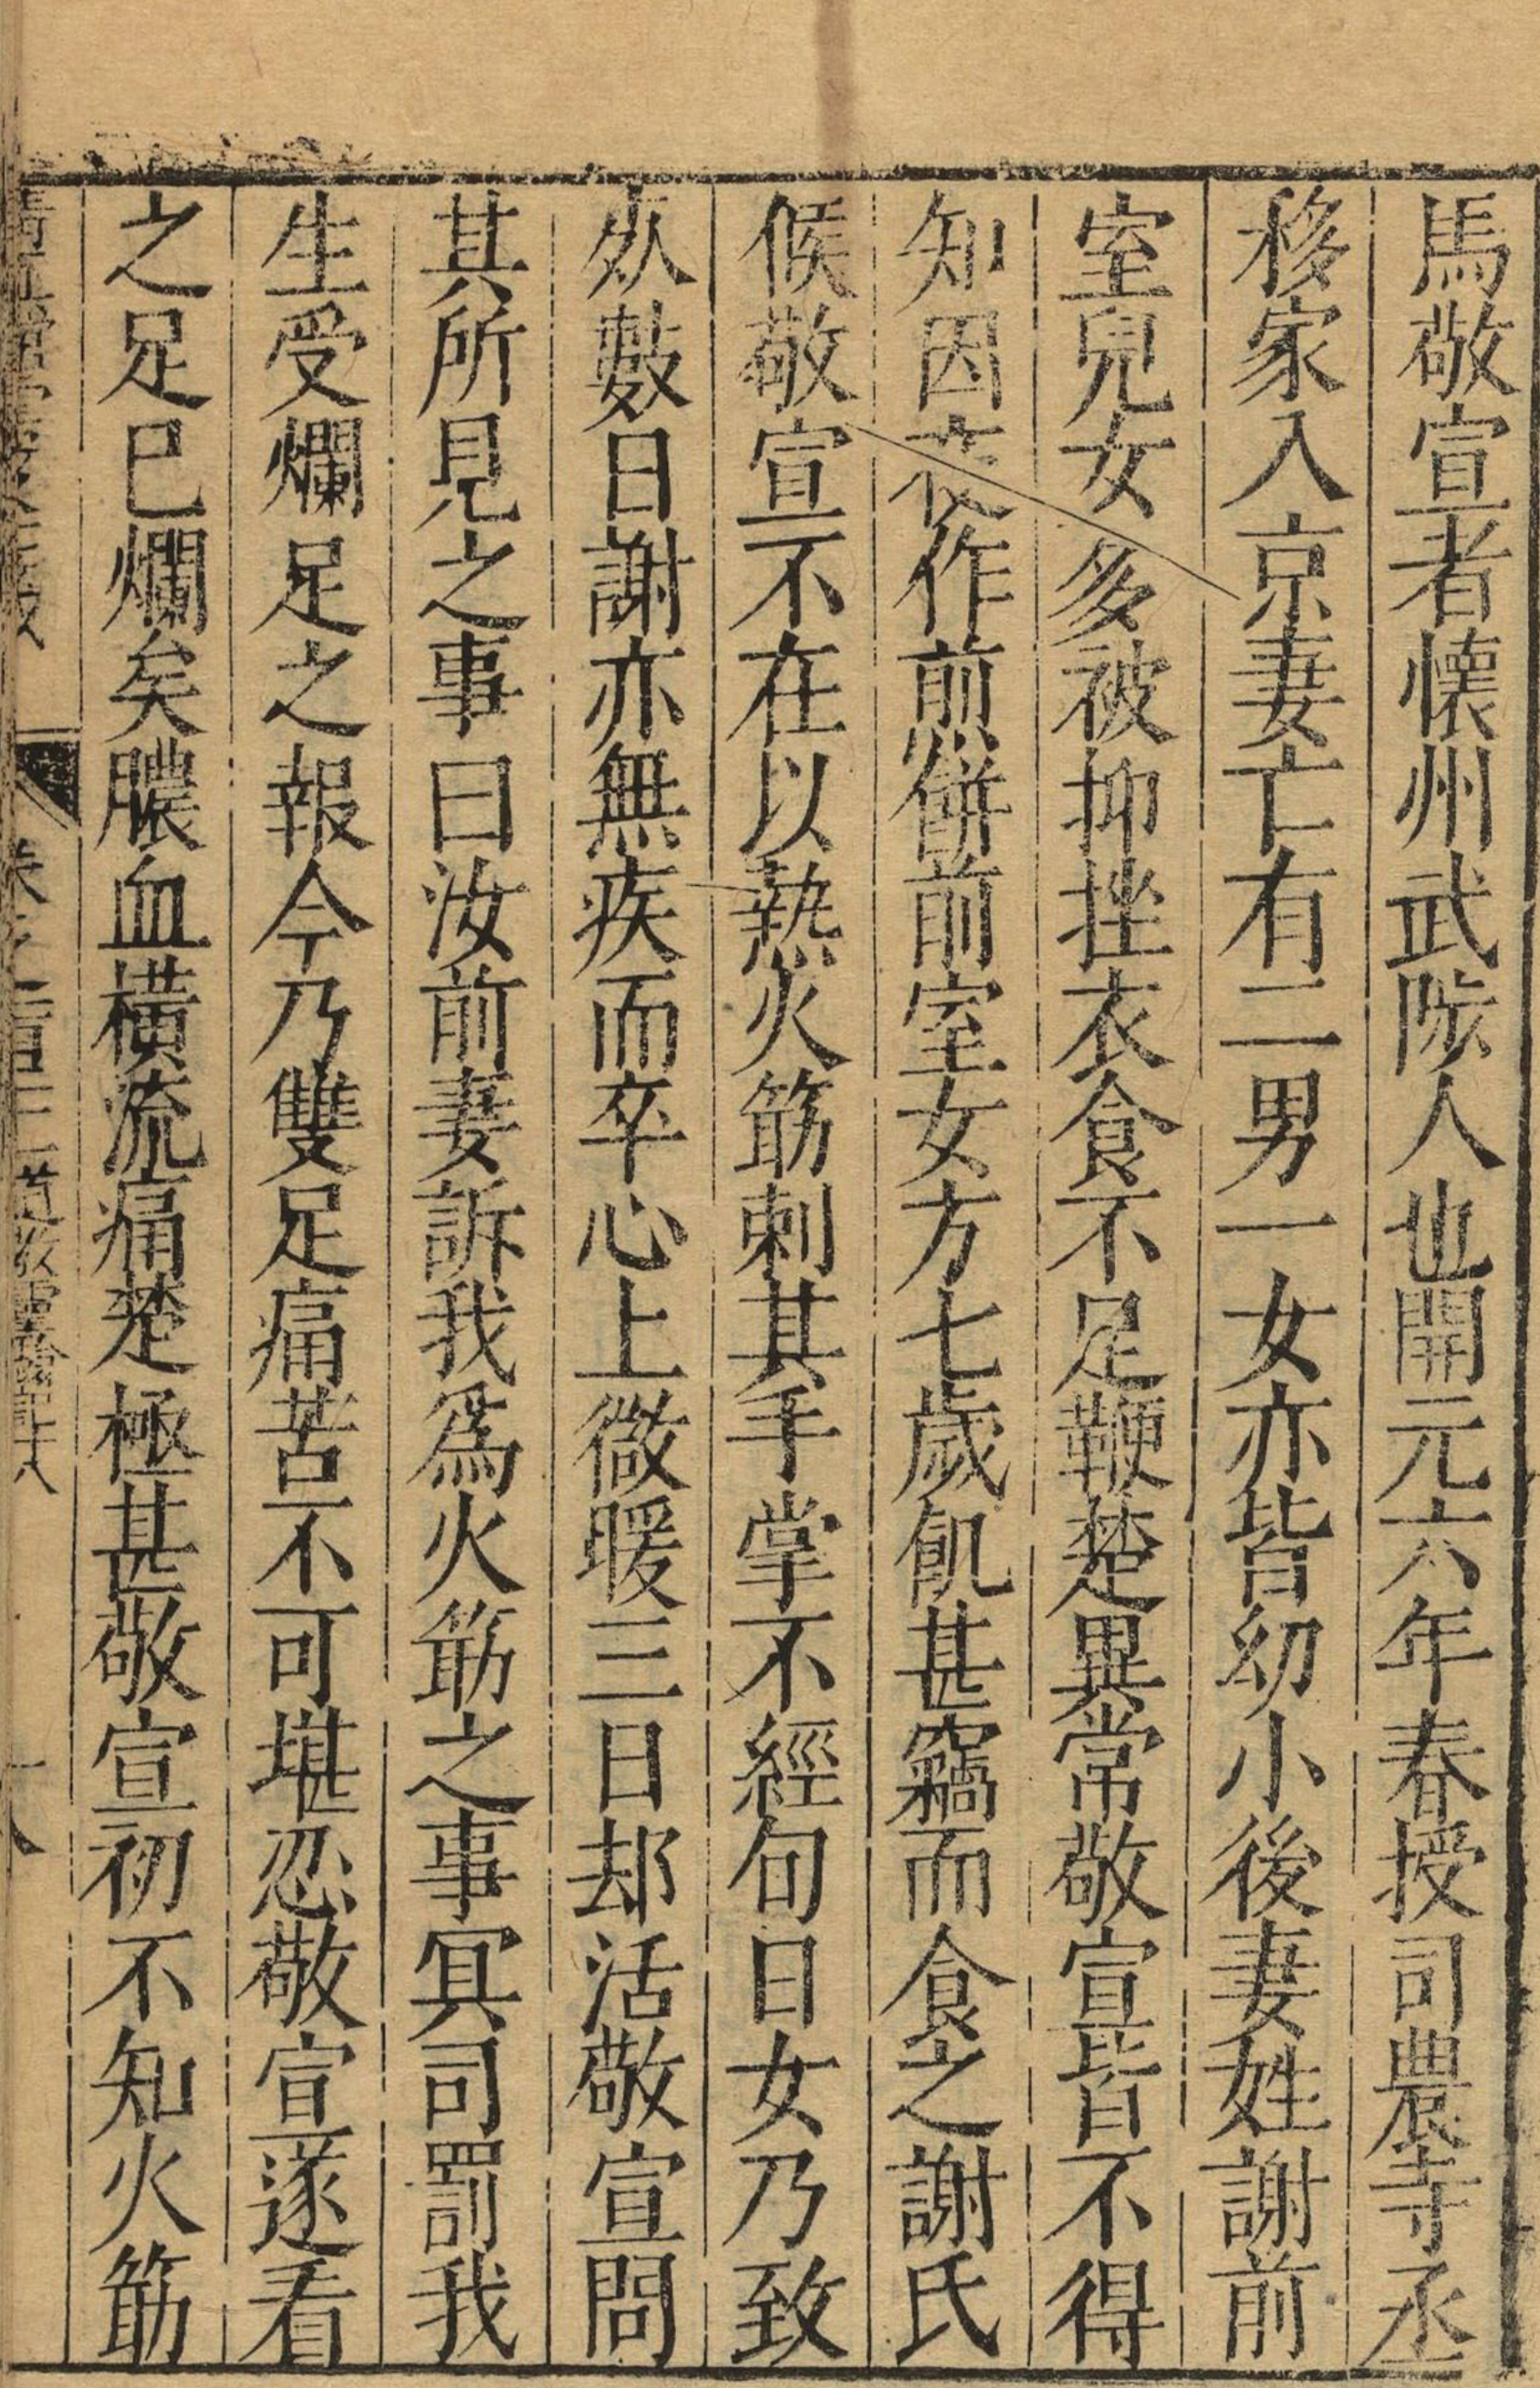 馬敬宣者懷州武陟人也開元六年春授司農寺丞
移家入京妻亡有二男一女亦皆幼小後妻姓謝前
室兒女多被抑挫衣食不足鞭楚異常敬宣皆不得
知因夜作煎餅前室女方七歲飢甚竊而食之謝氏
候敬宣不在以熱火筯刺其手掌不經旬日女乃致
夭數日謝亦無疾而卒心上微暖三日却活敬宣問
其所見之事曰汝前妻訴我爲火筯之事冥司罰我
生受爛足之報今乃雙足痛苦不可堪忍敬宣遂看
之足巳爛矣膿血橫流痛楚極甚敬宣初不知火筯